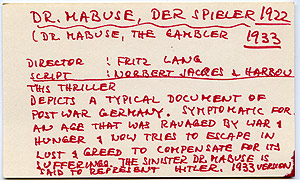 DR. MABUSE, DER SPIELER 1922
(DR. MABUSE, THE GAMBLER 1933
DIRECTOR : FRITZ LANG
SCRIPT : NORBERT JACQES & HARBOU
THIS THRILLER
DEPICTS A TYPICAL DOCUMENT OF
POST WAR GERMANY. SYMPTOMATIC FOR
AN AGE THAT WAS RAVAGED BY WAR &
HUNGER & NOW TRIES TO ESCAPE IN
LUST & GREED TO COMPENSATE FOR ITS
SUFFERINGS. THE SINISTER DR. MABUSE IS
SAID TO REPRESENT HITLER. 1933 VERSION)